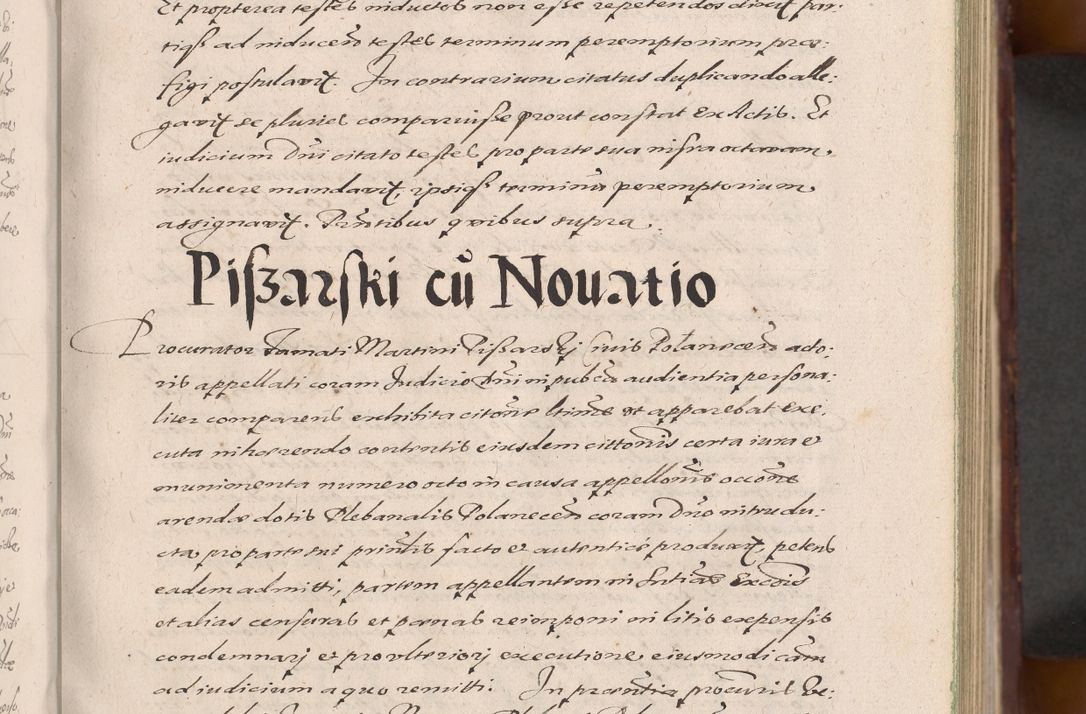 Et propterea testes inductos non esse repetendos dixit par:
tiqȝ ad inducen̄ testes terminum peremptorium præ:
figi postulavit. In contrarium citatus duplicando alle:
gavit se pluries comparuisse prout constat ex Actis. Et
iudicium Dn̄i citato testes pro parte sua infra octavam,
inducere mandavit, ipsiqȝ terminū peremptorium
assignavit. Pn̄tibus quibus supra.
Pisȝarski cū Nouatio
Procurator famati Martini Pisßarskij Civis Polanecen̄ acto:
ris appellati coram Judicio Dn̄i in pub̄ca audientia persona:
liter comparens exhibita citōne ltīme ut apparebat exe.
cuta inhærendo contentis eiusdem cittōnis certa iura et
munimenta numero octo in causa appellōnis occōne
arendæ dotis Plebanalis Polanecen̄ coram Dn̄o introdu:
cta pro parte sui prin̄lis facto et autenticè produxit, petens
eadem admitti, partem appellantem in Sn̄tias Excōis
et alias censuras et pœnas reimponi in litis expensis
condemnarj et pro vlteriorj executione eiusmodi cām
ad iudicium a quo remitti. In præn̄tia procuris Ve: